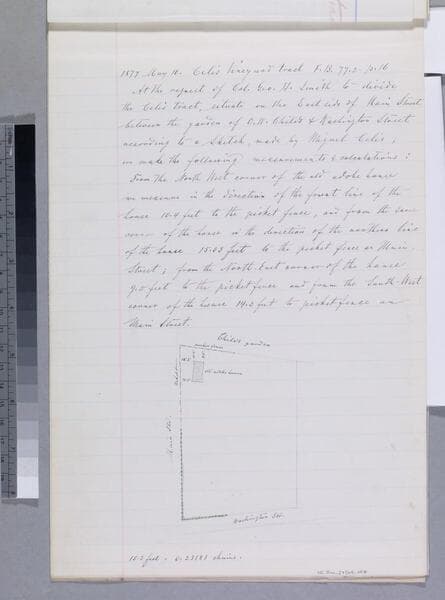 1877 May 10. Celis Vineyard tract F.B. 77.2 p. 16
At the request of Col. Geo. H. Smith to divide
the Celis tract, situate on the East side of Main Street
between the garden of O.W. Childs & Washington Street
according to a sketch, made by Miguel Celis,
we make the following measurements & calculations:
From the North West corner of the old adobe house
we measure in the direction of the front line of the
house 10.4 feet to the picket fence, and from the same
corner of the house in the direction of the northern line
of the house 15.05 feet to the picket fence on Main
Street; from the North East corner of the house
9.5 feet to the picket fence and from the South West
corner of the house 14.5 feet to picket fence on
Main Street.
Child's garden
picket fence
old adobe house
Main Str.
Washington Str.
15.5 feet = 0.23483 chains.